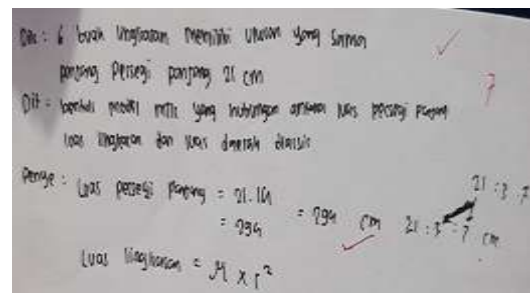 Dik : 6 buah lingkaran memiliki ukuran yang sama
panjang persegi panjang 21 cm
7
Dit = bentuk model mtk yang hubungan antara luas persegi panjang
luas lingkaran dan luas daerah diarsir
Penye : Luas persegi panjang = 21.14
= 294 = 294 cm
21 : 3 = 7
21 : 3 = 7 cm
Luas lingkaran = π x r²